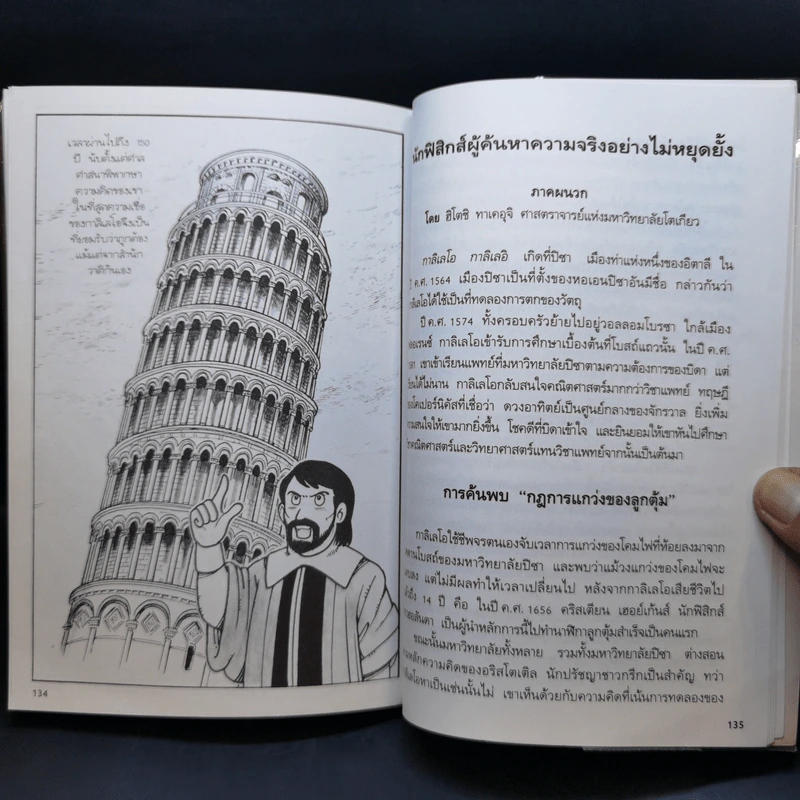 เวลาผ่านไปถึง 350
ปี นับตั้งแต่ศาล
ศาสนาพิพากษา
ความคิดของเขา
ในที่สุดความเชื่อ
ของกาลิเลโอจึงเป็น
ที่ยอมรับว่าถูกต้อง
แม้แต่จากสำนัก
วาติกันเอง
134
นักฟิสิกส์ผู้ค้นหาความจริงอย่างไม่หยุดยั้ง
ภาคผนวก
โดย ฮิโตชิ ทาเคอุจิ ศาสตราจารย์แห่งมหาวิทยาลัยโตเกียว
กาลิเลโอ กาลิเลอิ เกิดที่ปิซา เมืองท่าแห่งหนึ่งของอิตาลี ใน
ปี ค.ศ. 1564 เมืองปิซาเป็นที่ตั้งของหอเอนปิซาอันมีชื่อ กล่าวกันว่า
กาลิเลโอได้ใช้เป็นที่ทดลองการตกของวัตถุ
ปี ค.ศ. 1574 ทั้งครอบครัวย้ายไปอยู่วอลลอมโบรซา ใกล้เมือง
กาลิเลโอเข้ารับการศึกษาเบื้องต้นที่โบสถ์แถวนั้น ในปี ค.ศ.
เขาเข้าเรียนแพทย์ที่มหาวิทยาลัยปิซาตามความต้องการของบิดา แต่
เรียนได้ไม่นาน กาลิเลโอกลับสนใจคณิตศาสตร์มากกว่าวิชาแพทย์ ทฤษฎี
ของโคเปอร์นิคัสที่เชื่อว่า ดวงอาทิตย์เป็นศูนย์กลางของจักรวาล ยิ่งเพิ่ม
ความสนใจให้เขามากยิ่งขึ้น โชคดีที่บิดาเข้าใจ และยินยอมให้เขาหันไปศึกษา
คณิตศาสตร์และวิทยาศาสตร์แทนวิชาแพทย์จากนั้นเป็นต้นมา
การค้นพบ "กฎการแกว่งของลูกตุ้ม"
กาลิเลโอใช้ชีพจรตนเองจับเวลาการแกว่งของโคมไฟที่ห้อยลงมาจาก
เพดานโบสถ์ของมหาวิทยาลัยปิซา และพบว่าแม้วงแกว่งของโคมไฟจะ
แต่ไม่มีผลทำให้เวลาเปลี่ยนไป หลังจากกาลิเลโอเสียชีวิตไป
14 ปี คือ ในปี ค.ศ. 1656 คริสเตียน เฮอย์เก้นส์ นักฟิสิกส์
เป็นผู้นำหลักการนี้ไปทำนาฬิกาลูกตุ้มสำเร็จเป็นคนแรก
ขณะนั้นมหาวิทยาลัยทั้งหลาย รวมทั้งมหาวิทยาลัยปิซา ต่างสอน
หลักความคิดของอริสโตเติล นักปรัชญาชาวกรีกเป็นสำคัญ ทว่า
กาลิเลโอหาเป็นเช่นนั้นไม่ เขาเห็นด้วยกับความคิดที่เน้นการทดลองของ
135